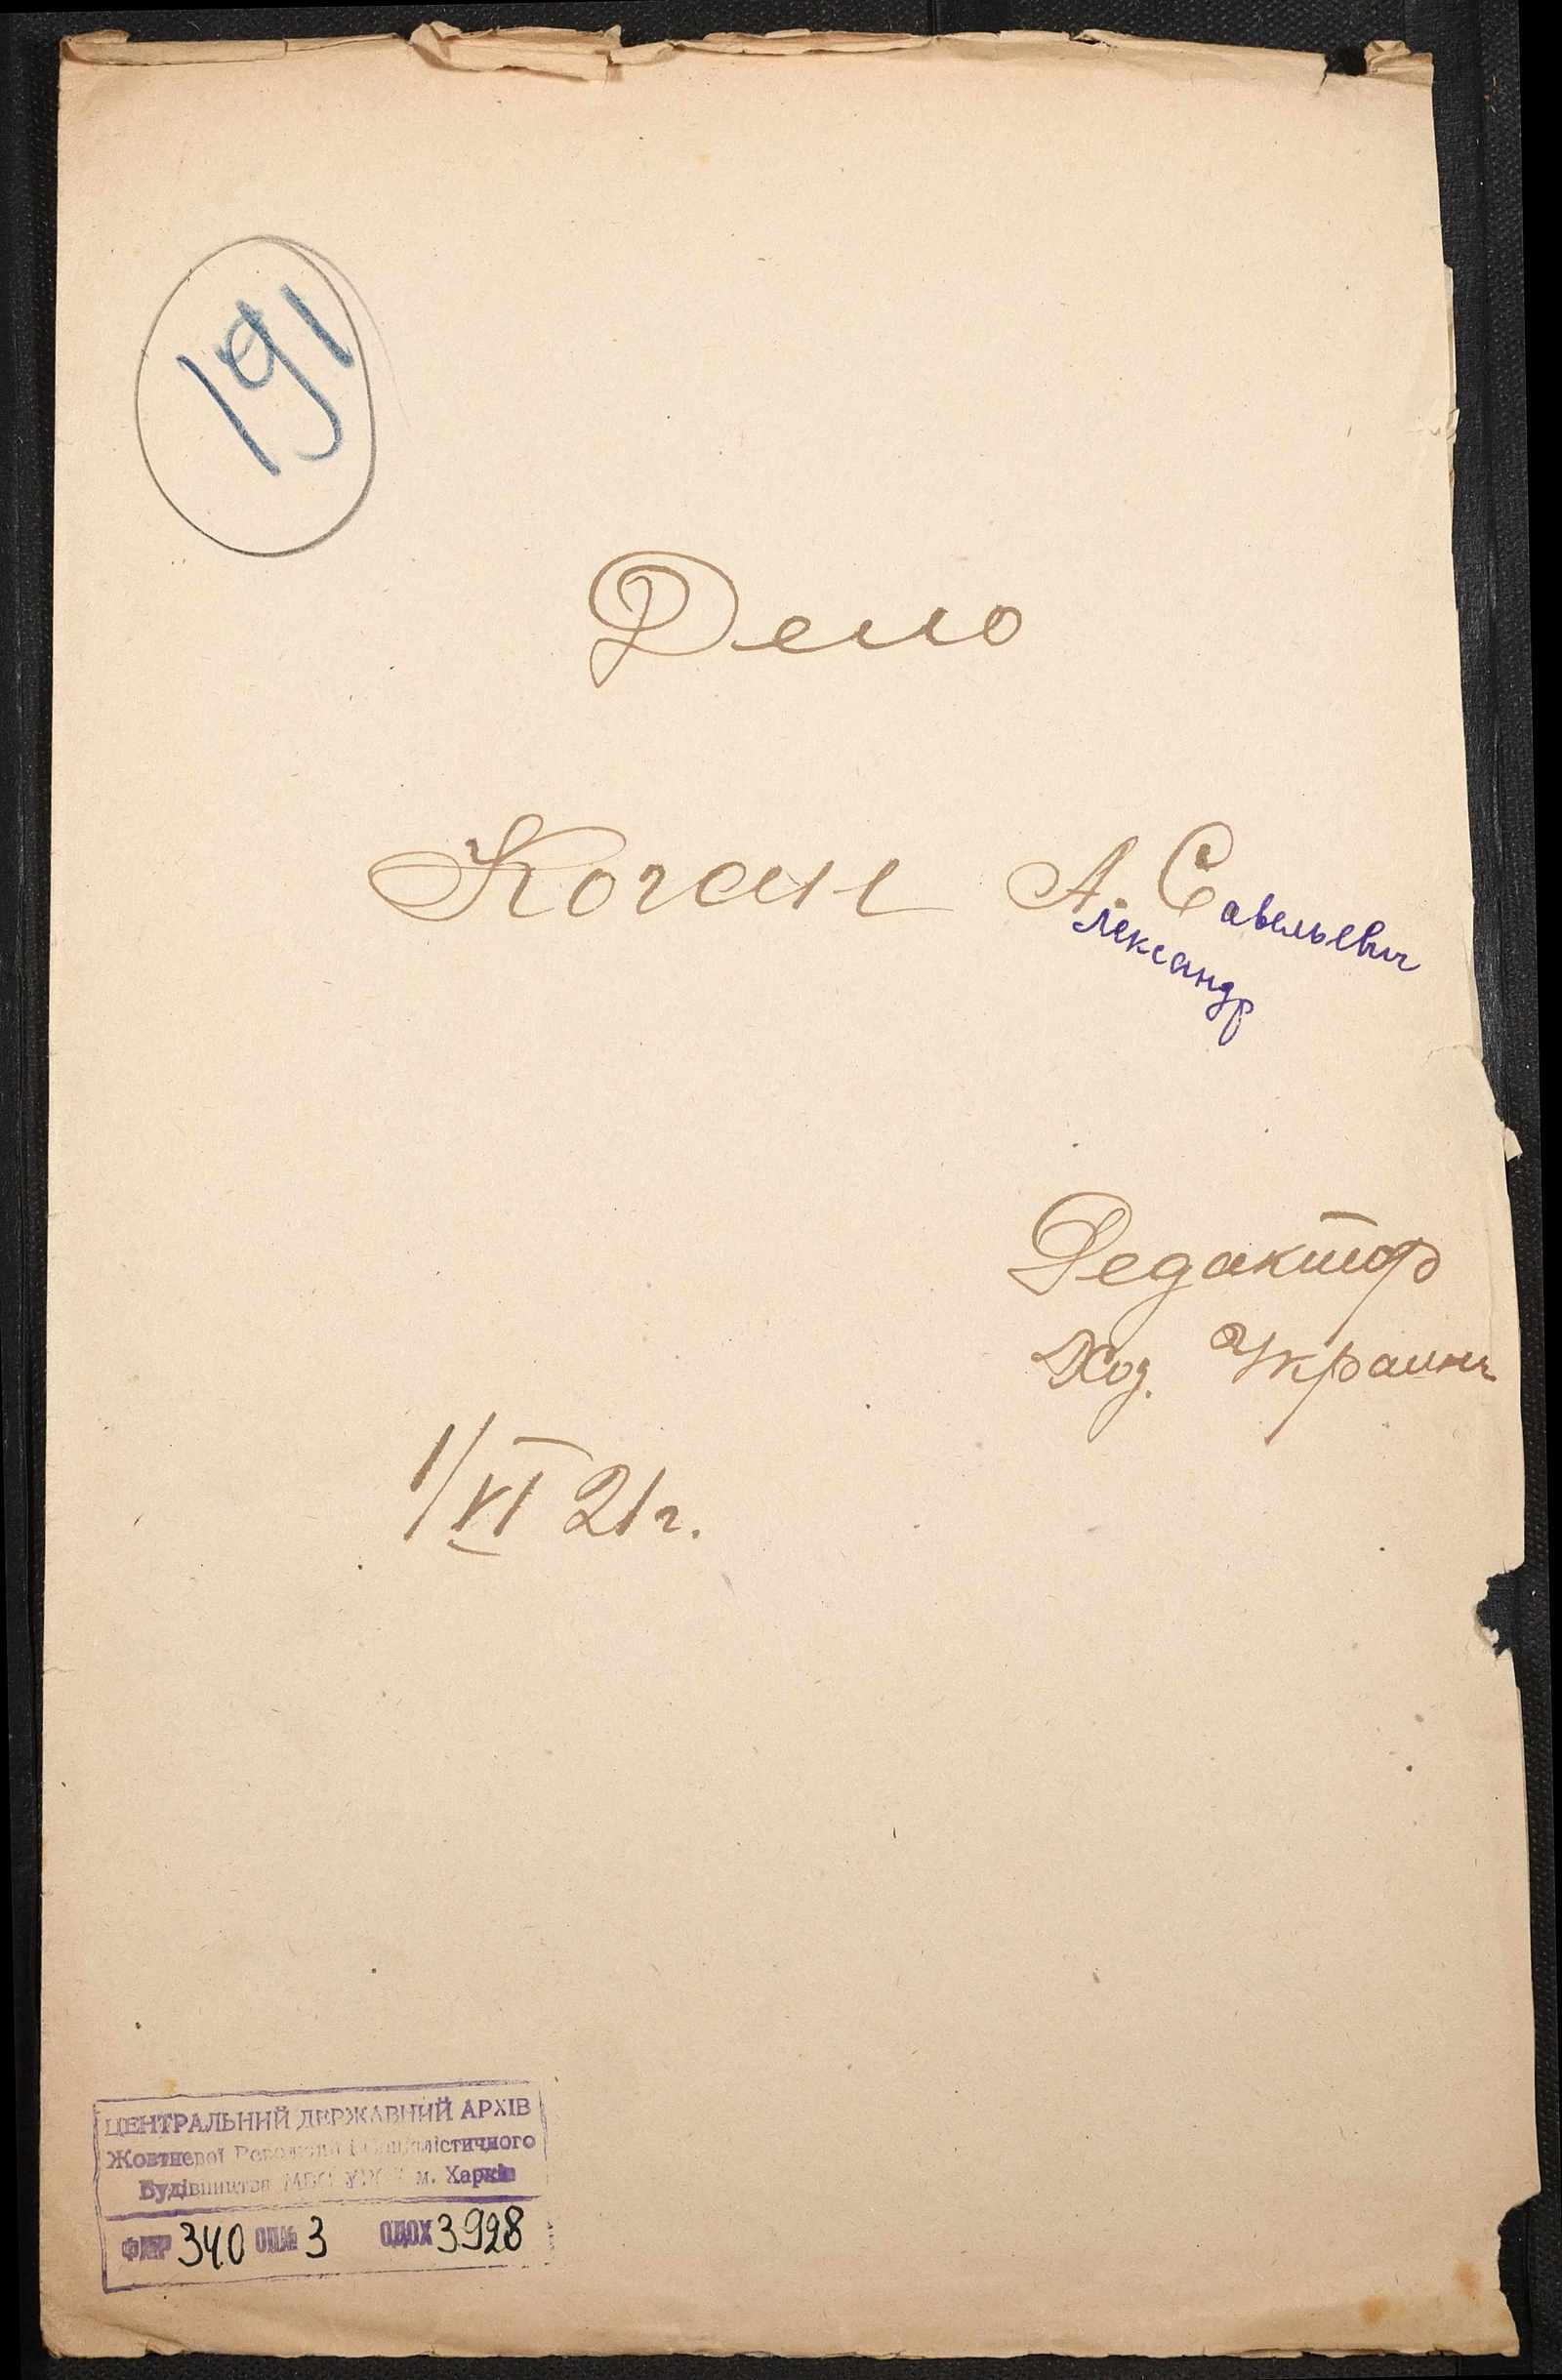 191
Дело
Коган А. Савельевич
лександр
Редактор
Хоз. Украины
1/VI 21 г.
ЦЕНТРАЛЬНИЙ ДЕРЖАВНИЙ АРХІВ
Жовтневої Революції і соціалістичного
Будівництва м. Харків
340 3 ОДОХ 3928